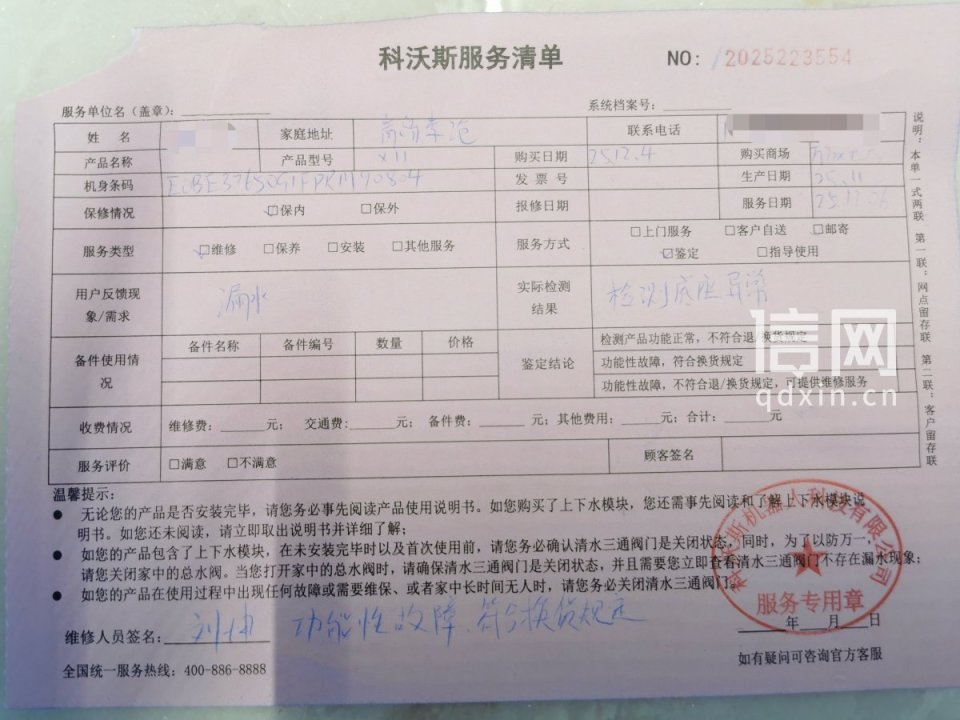 科沃斯服务清单
NO: 2025223554
服务单位名（盖章）: 系统档案号:
姓 名 家庭地址 联系电话
产品名称 产品型号 X11 购买日期 25.12.4 购买商场
机身条码 发 票 号 生产日期 25.11
保修情况 ☑保内 □保外 报修日期 服务日期
服务类型 ☑维修 □保养 □安装 □其他服务 服务方式 □上门服务 □客户自送 □邮寄
☑鉴定 □指导使用
用户反馈现象/需求 漏水 实际检测结果 检测底座异常
备件使用情况 备件名称 备件编号 数量 价格 鉴定结论 检测产品功能正常，不符合退/换货规定
功能性故障，符合换货规定
功能性故障，不符合退/换货规定，可提供维修服务
收费情况 维修费: 元; 交通费: 元; 备件费: 元; 其他费用: 元; 合计: 元
服务评价 □满意 □不满意 顾客签名
说明：本单一式两联 第一联：网点留存联 第二联：客户留存联
温馨提示:
● 无论您的产品是否安装完毕，请您务必事先阅读产品使用说明书。如您购买了上下水模块，您还需事先阅读和了解上下水模块说
明书。如您还未阅读，请立即取出说明书并详细了解;
● 如您的产品包含了上下水模块，在未安装完毕时以及首次使用前，请您务必确认清水三通阀门是关闭状态，同时，为了以防万一，
请您关闭家中的总水阀。当您打开家中的总水阀时，请确保清水三通阀门是关闭状态，并且需要您立即查看清水三通阀门不存在漏水现象;
● 如您的产品在使用过程中出现任何故障或需要维保、或者家中长时间无人时，请您务必关闭清水三通阀门。
维修人员签名: 功能性故障，符合换货规定
年 月 日
全国统一服务热线: 400-886-8888
如有疑问可咨询官方客服
服务专用章
信网
qdxin.cn